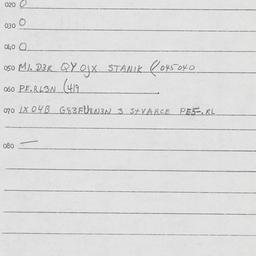 020 0
030 0
040 0
050 MI. D3R QY OJX STANIK (045040
060 PF.RLSN (419
070 1X04B G83FUENZN 3 S+VARCE PE5-.RL
080 —